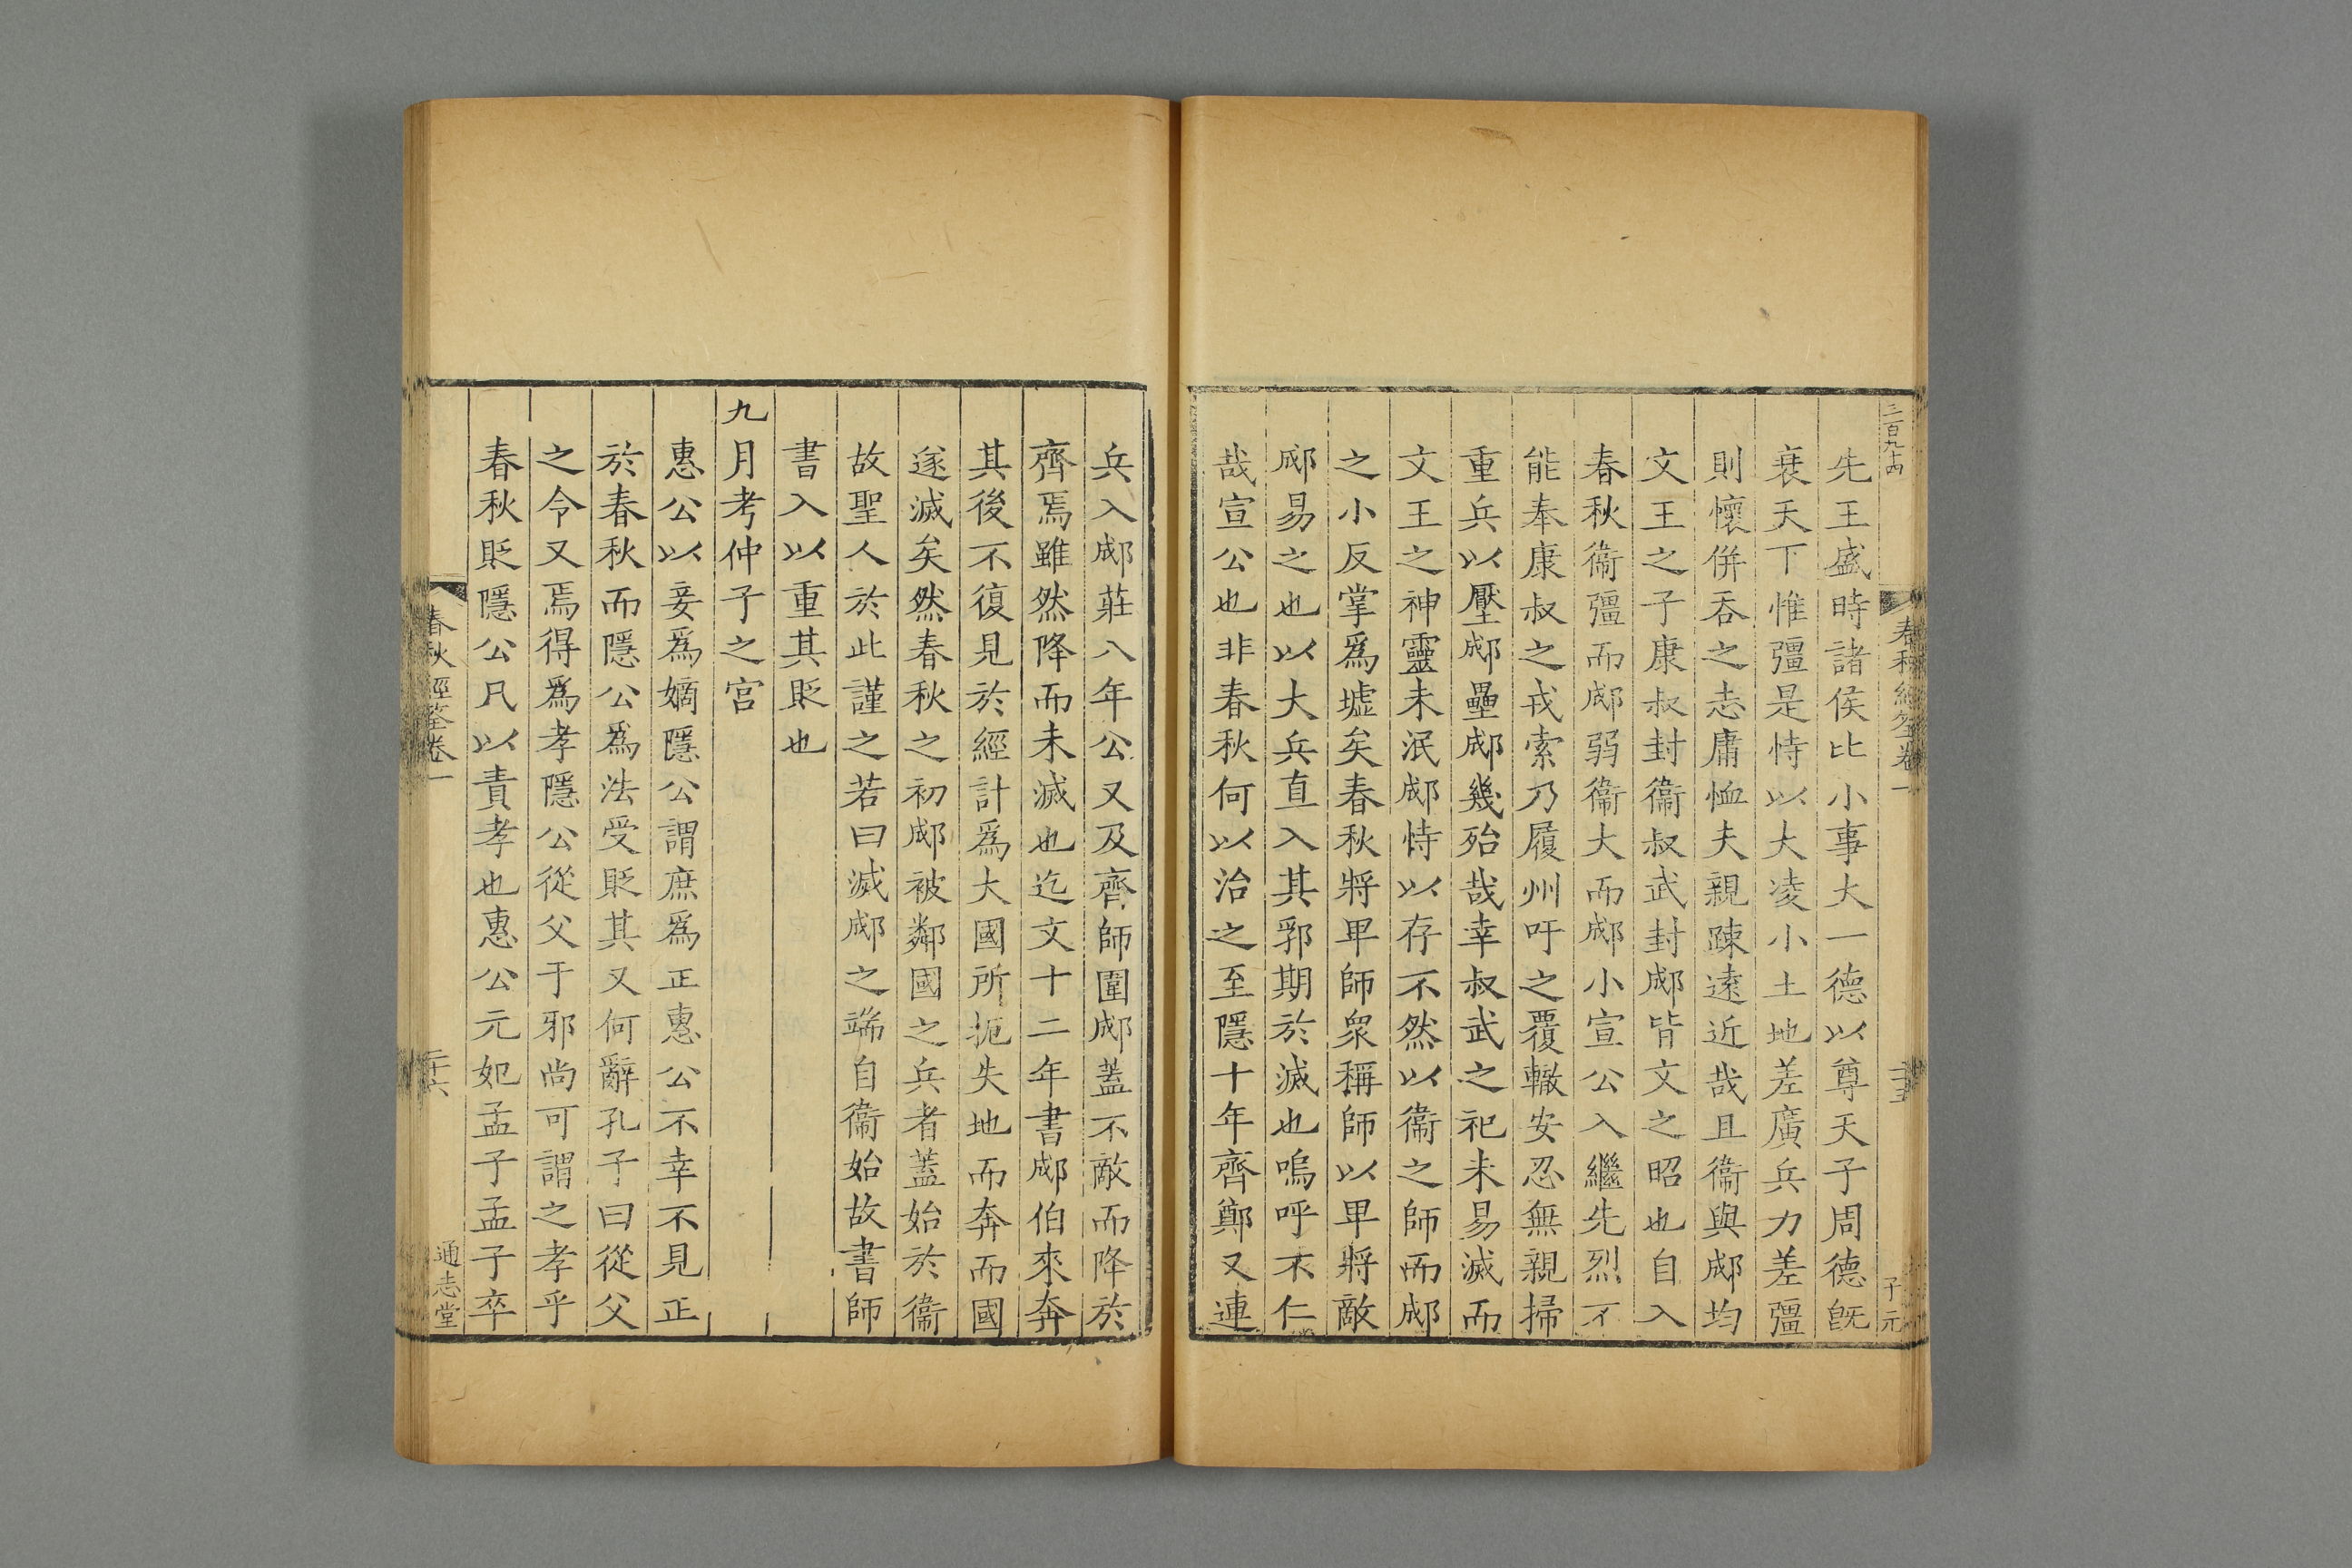 三百九十四
春秋經筌卷一
子元
先王盛時諸侯比小事大一德以尊天子周德旣
衰天下惟彊是恃以大凌小土地差廣兵力差彊
則懷併吞之志庸恤夫親踈遠近哉且衞與郕均
文王之子康叔封衞叔武封郕皆文之昭也自入
春秋衞彊而郕弱衞大而郕小宣公入繼先烈不
能奉康叔之戎索乃履州吁之覆轍安忍無親掃
重兵以壓郕壘郕幾殆哉幸叔武之祀未易滅而
文王之神靈未泯郕恃以存不然以衞之師而郕
之小反掌爲墟矣春秋將甲師衆稱師以甲將敵
郕易之也以大兵直入其郛期於滅也嗚呼不仁
哉宣公也非春秋何以治之至隱十年齊鄭又連
兵入郕莊八年公又及齊師圍郕蓋不敵而降於
齊焉雖然降而未滅也迄文十二年書郕伯來奔
其後不復見於經計爲大國所扼失地而奔而國
遂滅矣然春秋之初郕被鄰國之兵者蓋始於衞
故聖人於此謹之若曰滅郕之端自衞始故書師
書入以重其貶也
九月考仲子之宮
惠公以妾爲嫡隱公謂庶爲正惠公不幸不見正
於春秋而隱公爲法受貶其又何辭孔子曰從父
之令又焉得爲孝隱公從父于邪尚可謂之孝乎
春秋貶隱公凡以責孝也惠公元妃孟子孟子卒
春秋經筌卷一
二十六
通志堂